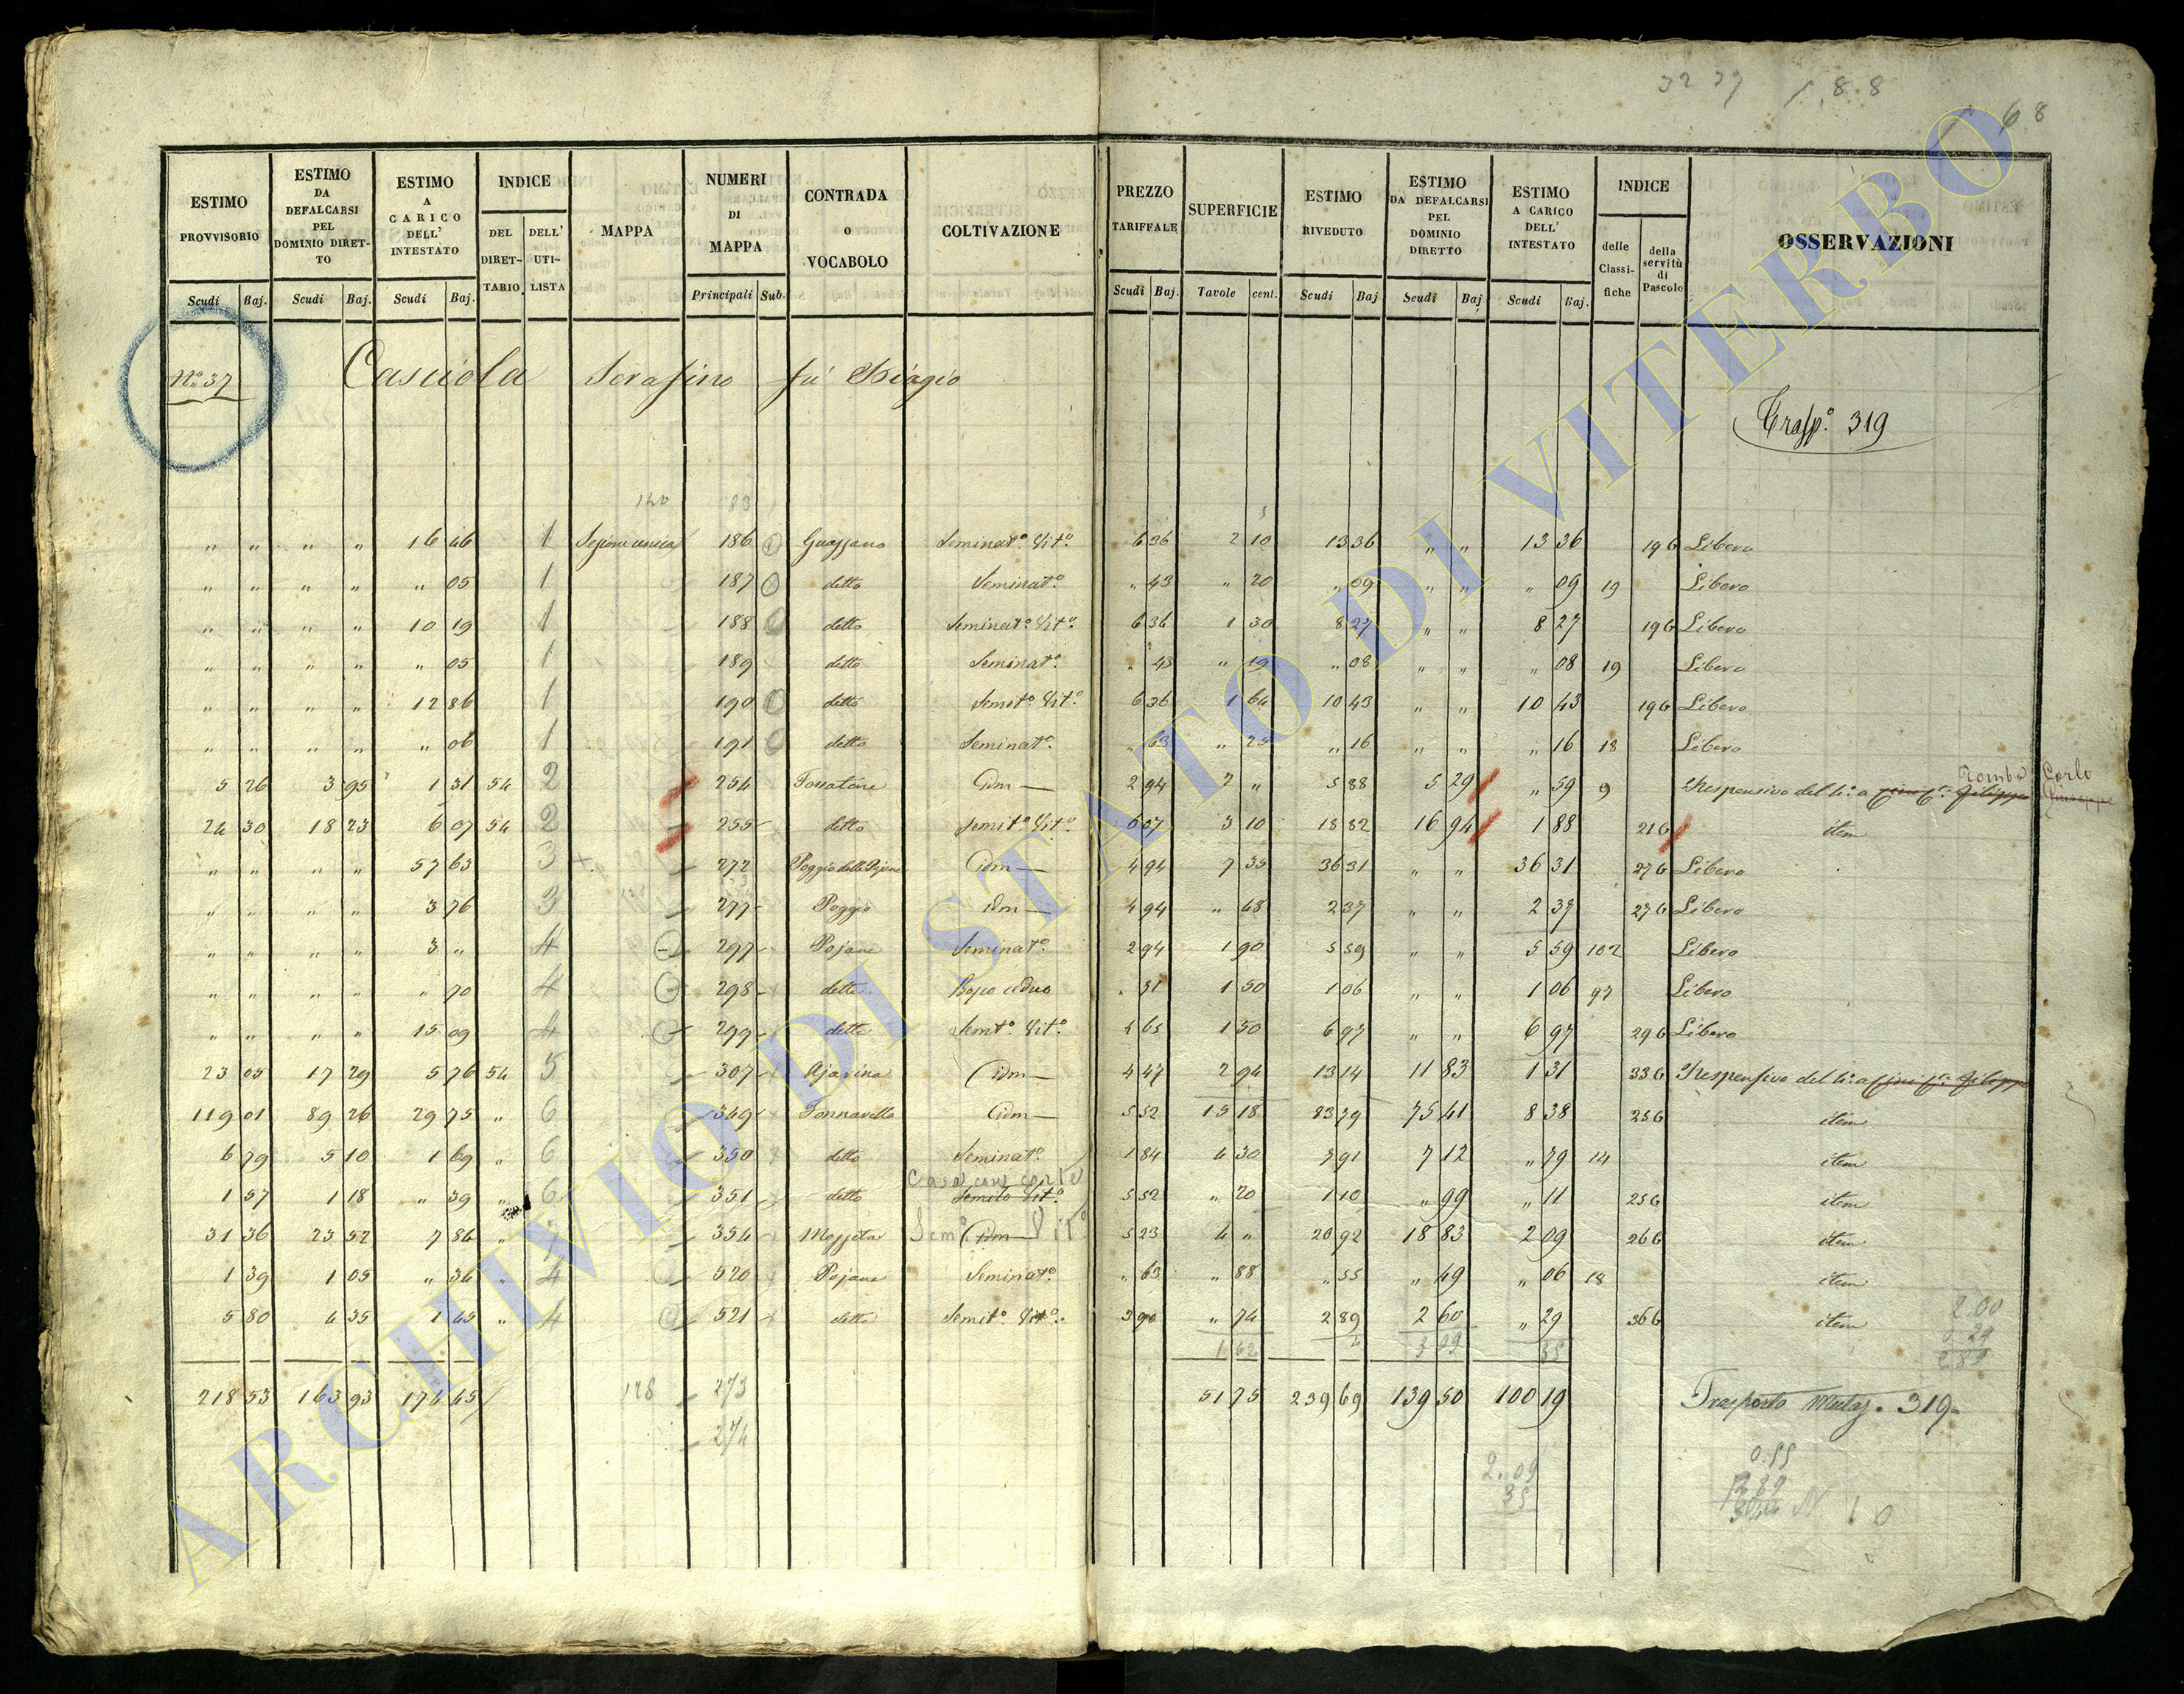 32 37 188
68
ESTIMO PROVVISORIO | ESTIMO DA DEFALCARSI PEL DOMINIO DIRETTO | ESTIMO A CARICO DELL' INTESTATO | INDICE DEL DIRETTARIO | DELL' UTILISTA | MAPPA | NUMERI DI MAPPA | CONTRADA O VOCABOLO | COLTIVAZIONE | PREZZO TARIFFALE | SUPERFICIE | ESTIMO RIVEDUTO | ESTIMO DA DEFALCARSI PEL DOMINIO DIRETTO | ESTIMO A CARICO DELL' INTESTATO | INDICE delle Classifiche | della servitù di Pascolo | OSSERVAZIONI
Scudi Baj. | Scudi Baj. | Scudi Baj. | Principali Sub. | Scudi Baj. | Tavole cent. | Scudi Baj | Scudi Baj | Scudi Baj.
N.º 37 Casciola Serafino fu Biagio
Trasp.º 319
140 83
" " " " 16 46 1 Sezione unica 186 Guazzano Seminat.º Vit.º 6 36 2 10 13 36 " " 13 36 19 G Libero
" " " " " 05 1 187 detto Seminat.º " 43 " 20 " 09 " " " 09 19 Libero
" " " " 10 19 1 188 detto Seminat.º Vit.º 6 36 1 30 8 27 " " 8 27 19 G Libero
" " " " " 05 1 189 detto Seminat.º " 43 " 19 " 08 " " " 08 19 Libero
" " " " 12 86 1 190 detto Semit.º Vit.º 6 36 1 64 10 43 " " 10 43 19 G Libero
" " " " " 06 1 191 detto Seminat.º " 63 " 25 " 16 " " " 16 18 Libero
5 26 3 95 1 31 54 2 254 idm 2 94 2 " 5 88 5 29 " 59 9 Responsivo del 4.º a Carlo
24 30 18 23 6 07 54 2 255 detto Semit.º Vit.º 6 07 3 10 18 82 16 94 1 88 21 G item
" " " " 57 63 3 272 Poggio delle Pojane idm 4 94 7 35 36 31 " " 36 31 27 G Libero
" " " " 3 76 3 277 Poggio idm 4 94 " 48 2 37 " " 2 37 27 G Libero
" " " " 3 " 4 297 Pojane Seminat.º 2 94 1 90 5 59 " " 5 59 102 Libero
" " " " " 70 4 298 dette Bosco ceduo " 1 50 1 06 " " 1 06 97 Libero
" " " " 15 09 4 299 dette Semt.º Vit.º 4 65 1 50 6 97 " " 6 97 29 G Libero
23 05 17 29 5 76 54 5 307 idm 4 47 2 94 13 14 11 83 1 31 33 G Responsivo del 4.º a
119 01 89 26 29 75 " 6 349 Fonnavello idm 5 52 15 18 83 79 75 41 8 38 25 G item
6 79 5 10 1 69 " 6 350 detto Seminat.º 1 84 4 30 7 91 7 12 " 79 14 item
Casa con corte
1 57 1 18 " 39 " 6 351 detto Semito Vit.º 5 52 " 20 1 10 " 99 " 11 25 G item
31 36 23 52 7 84 " 354 Mozzeta Sem.º idm Vit.º 5 23 4 " 20 92 18 83 2 09 26 G item
1 39 1 05 " 34 " 4 520 Pojane Seminat.º " 63 " 88 " 55 " 49 " 06 18 item
5 80 4 35 1 45 " 4 521 dette Semit.º Vit.º 3 90 " 74 2 89 2 60 " 29 36 G item
1 62 3 09 35
218 53 163 93 174 45 128 273 51 75 239 69 139 50 100 19 Trasporto Mutaz. 319
274
2.09
35
0.55
2 89
ARCHIVIO DI STATO DI VITERBO